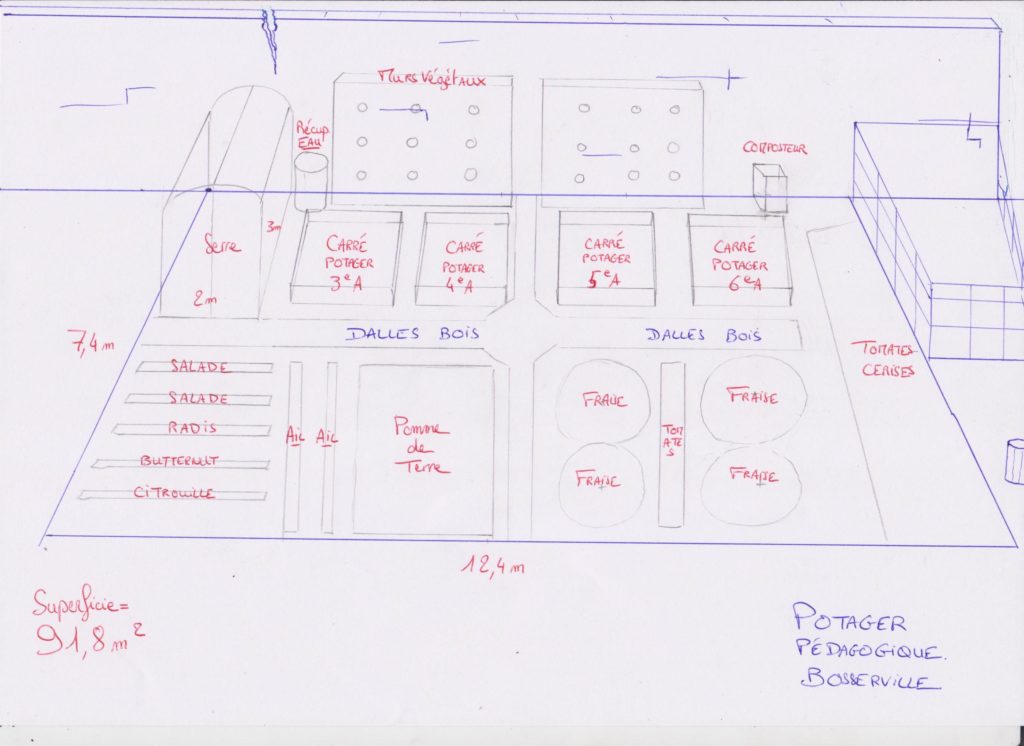 MURS VÉGÉTAUX
Récup
EAU
COMPOSTEUR
Serre
3m
2m
CARRÉ
POTAGER
3eA
CARRÉ
POTAGER
4eA
CARRÉ
POTAGER
5eA
CARRÉ
POTAGER
6eA
7,4m
DALLES BOIS
DALLES BOIS
TOMATES
CERISES
SALADE
SALADE
RADIS
BUTTERNUT
CITROUILLE
AIL
AIL
Pomme
de
Terre
FRAISE
FRAISE
TOM
ATE
S
FRAISE
FRAISE
12,4m
Superficie=
91,8m²
POTAGER
PÉDAGOGIQUE.
BOSSERVILLE